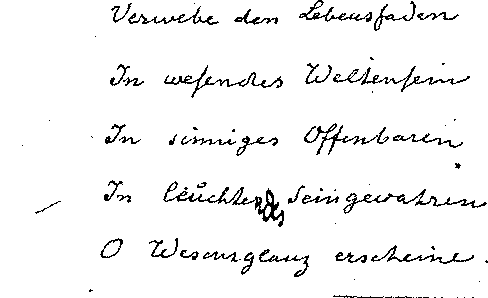 Verwebe den Lebensfaden
In wesendes Weltensein
In sinniges Offenbaren
In leuchtendes Seingewahren
O Wesensglanz erscheine.